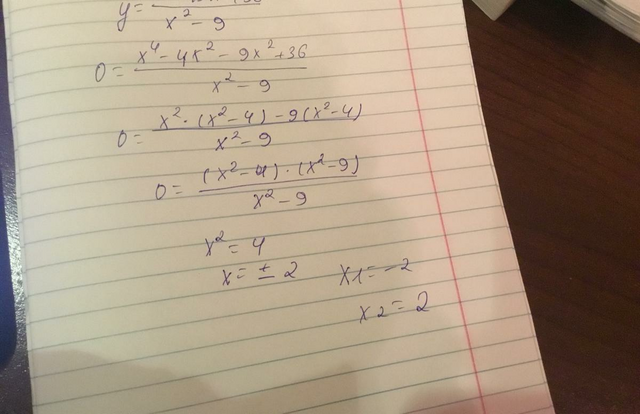 y = / x² - 9
0 = x⁴ - 4x² - 9x² + 36 / x² - 9
0 = x² · (x² - 4) - 9(x² - 4) / x² - 9
0 = (x² - 4) · (x² - 9) / x² - 9
x² = 4
x = ± 2 x1 = -2
x2 = 2